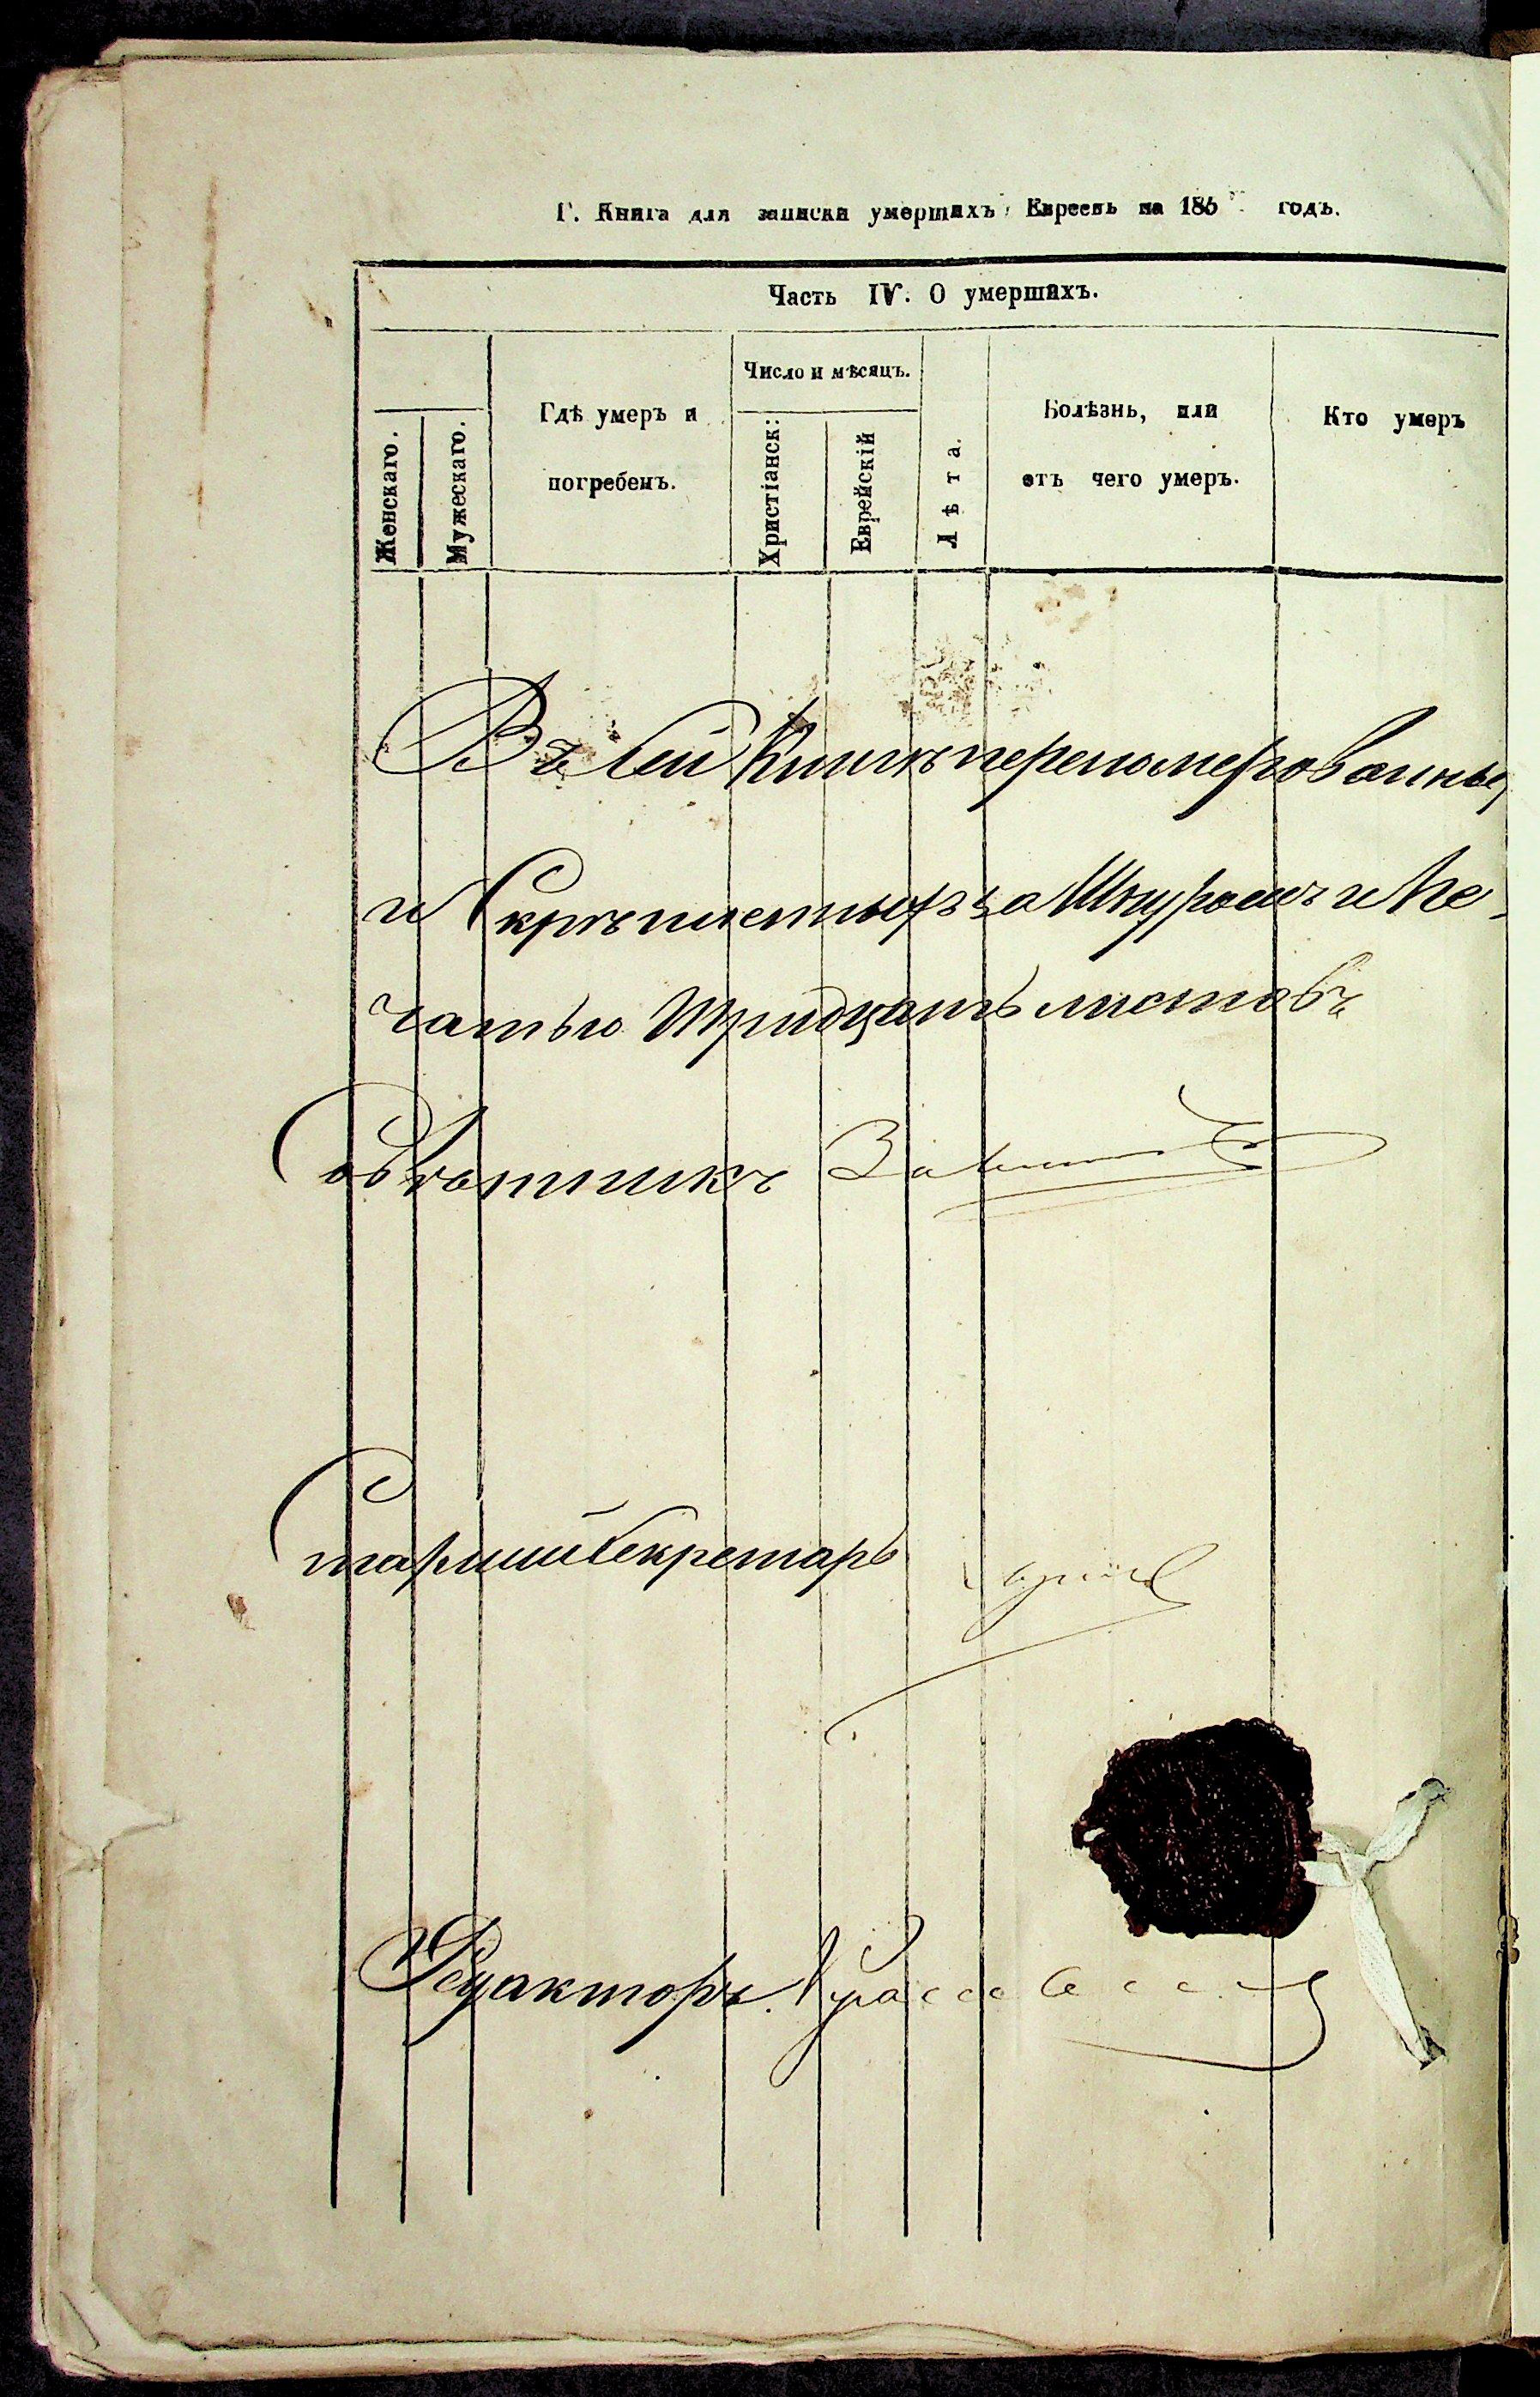 Г. Книга для записки умершихъ Евреевъ на 186 годъ.
Часть IV. О умершихъ.
Женскаго.
Мужескаго.
Гдѣ умеръ и
погребенъ.
Число и мѣсяцъ.
Христіанск:
Еврейскій
Лѣта.
Болѣзнь, или
отъ чего умеръ.
Кто умеръ
Въ сей Книгѣ перепомерованныхъ
и Скрѣпленныхъ за Шнуромъ и Пе-
чатью Тридцать листовъ
Совѣтникъ
Старшій Секретарь
Редакторъ